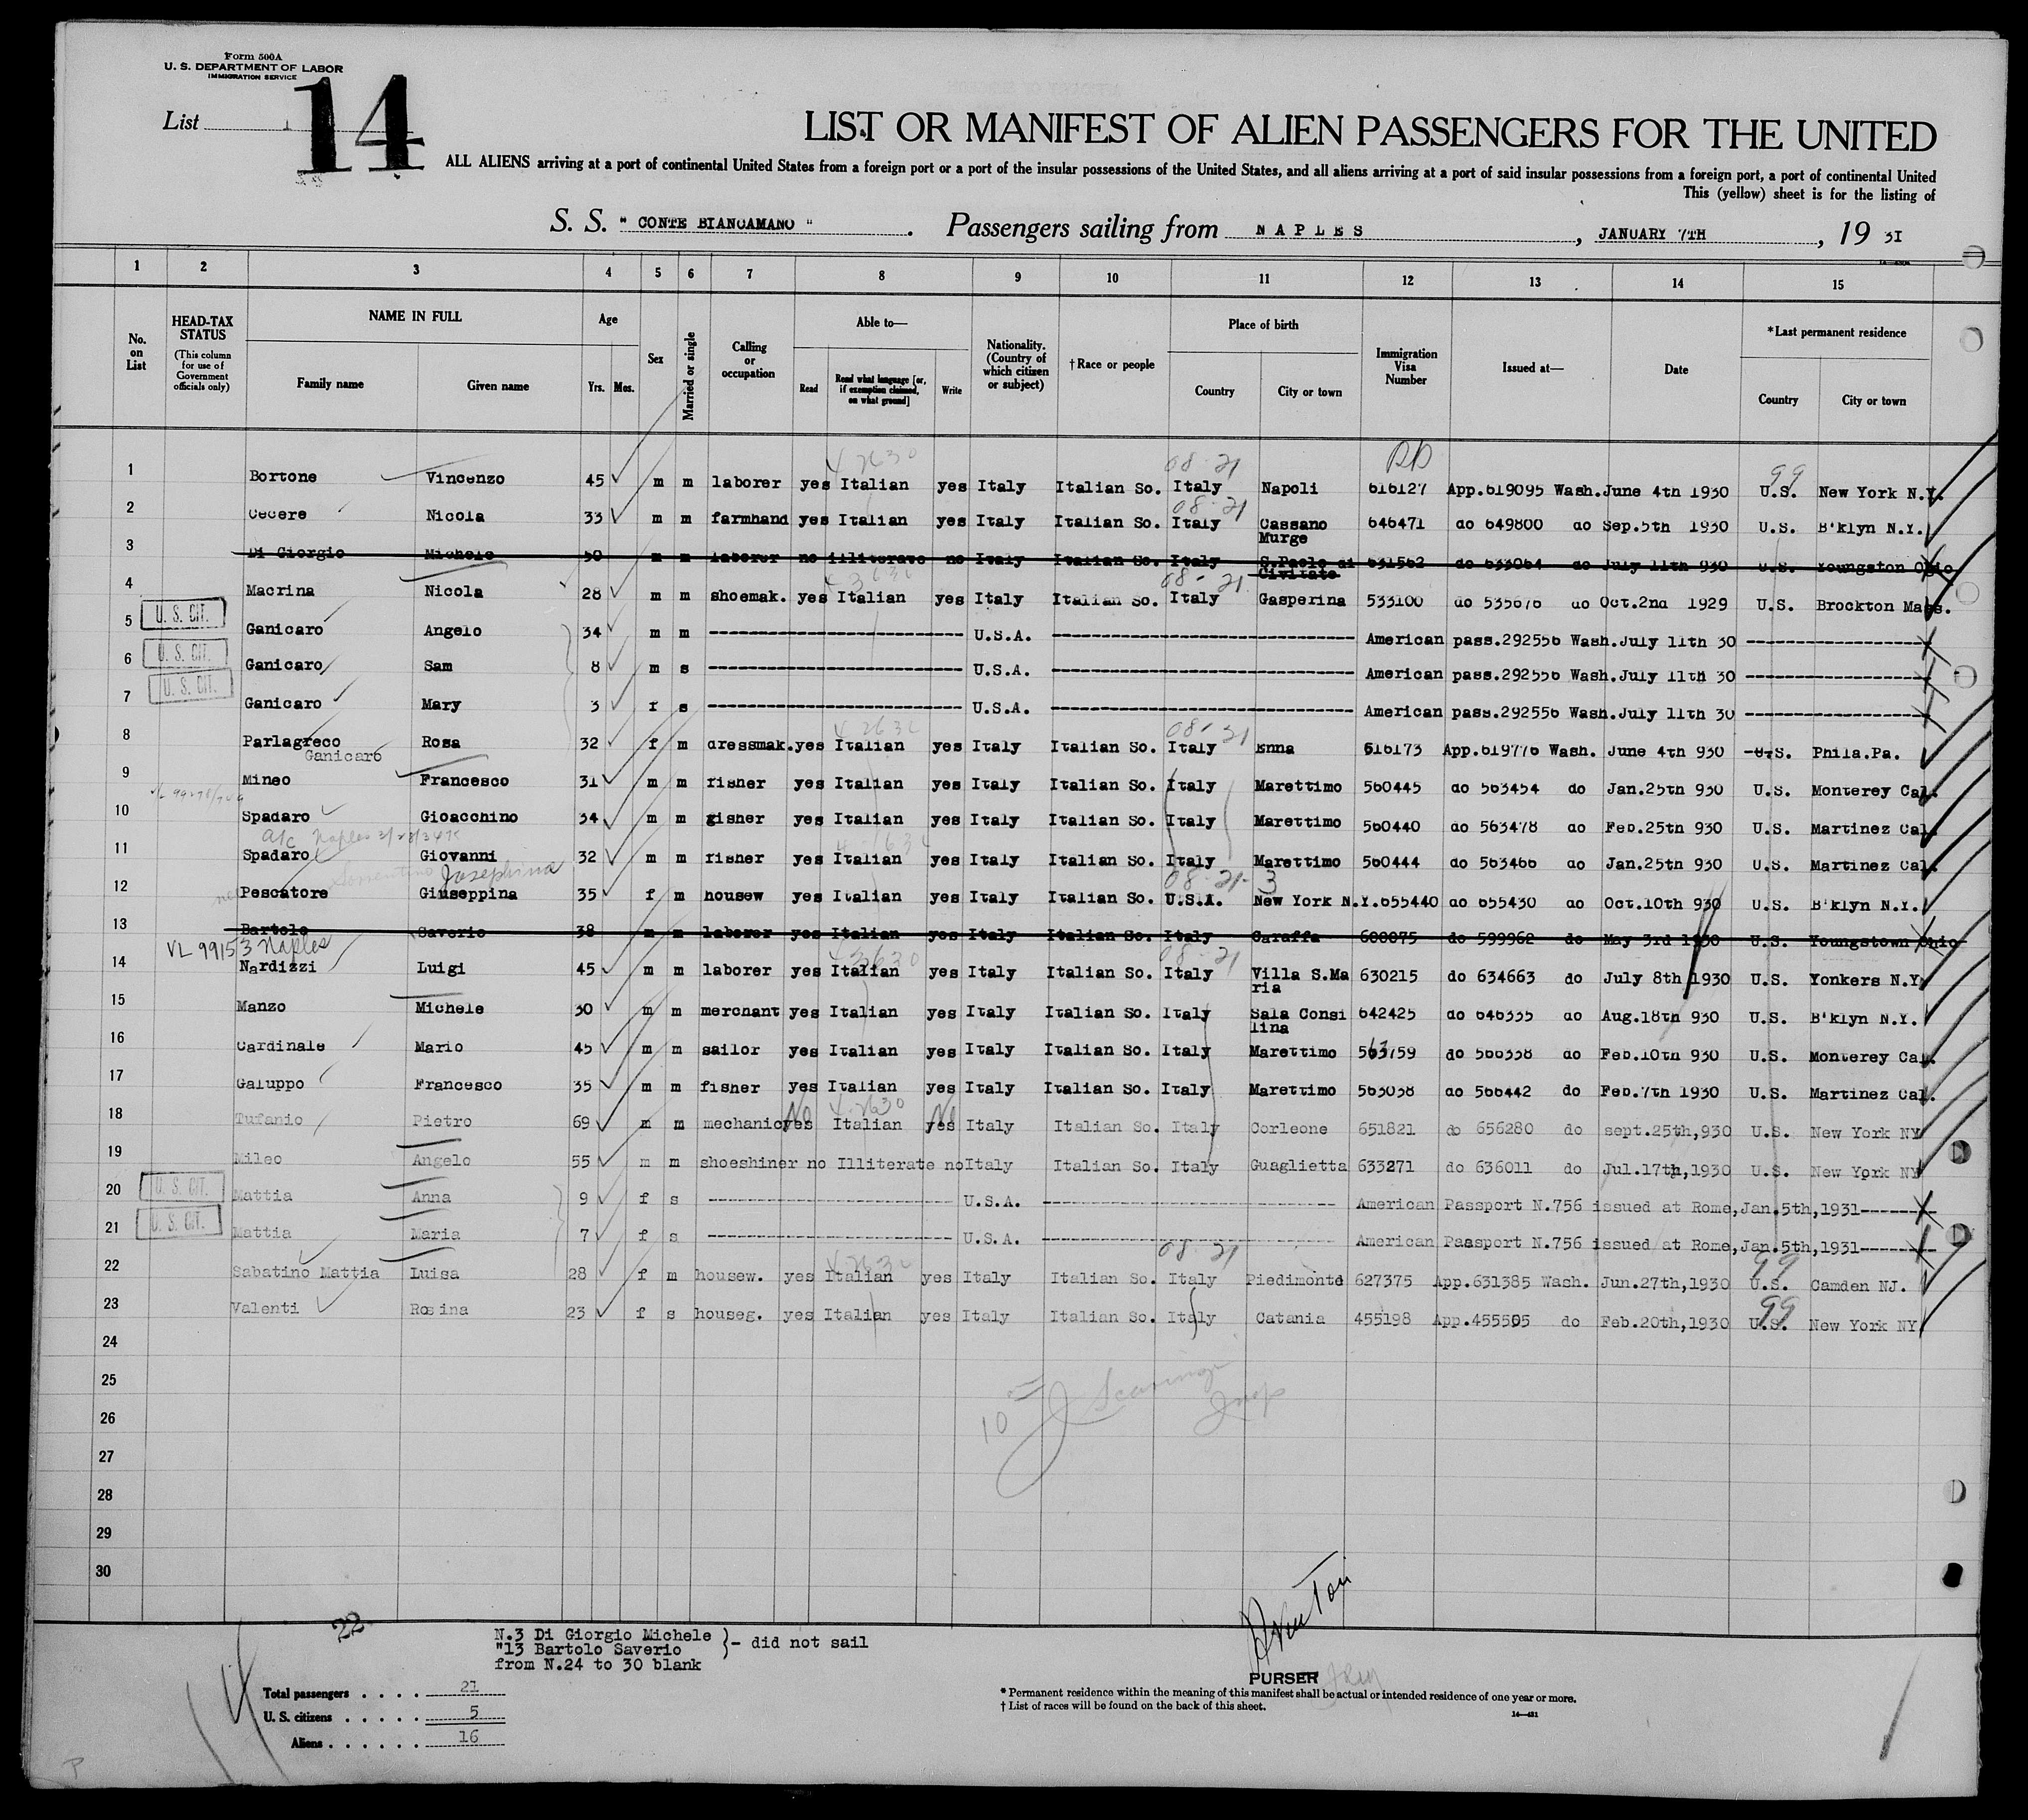 Form 500A
U. S. DEPARTMENT OF LABOR
IMMIGRATION SERVICE
List 14
LIST OR MANIFEST OF ALIEN PASSENGERS FOR THE UNITED
ALL ALIENS arriving at a port of continental United States from a foreign port or a port of the insular possessions of the United States, and all aliens arriving at a port of said insular possessions from a foreign port, a port of continental United
This (yellow) sheet is for the listing of
S. S. " CONTE BIANCAMANO " . Passengers sailing from NAPLES , JANUARY 7TH , 19 3I
1 2 3 4 5 6 7 8 9 10 11 12 13 14 15
No. on List HEAD-TAX STATUS (This column for use of Government officials only) NAME IN FULL Family name Given name Age Yrs. Mos. Sex Married or single Calling or occupation Able to— Read Read what language [or, if exemption claimed, on what ground] Write Nationality. (Country of which citizen or subject) †Race or people Place of birth Country City or town Immigration Visa Number Issued at— Date *Last permanent residence Country City or town
1 Bortone Vincenzo 45 m m laborer yes Italian yes Italy Italian So. Italy Napoli 616127 App.619095 Wash. June 4th 1930 U.S. New York N.Y.
2 Cecere Nicola 33 m m farmhand yes Italian yes Italy Italian So. Italy Cassano Murge 646471 do 649800 do Sep.5th 1930 U.S. B'klyn N.Y.
3 Di Giorgio Michele 50 m m laborer no illiterate no Italy Italian So. Italy S.Paolo di Civitate 631562 do 633064 do July 11th 930 U.S. Youngston Ohio
4 Macrina Nicola 28 m m shoemak. yes Italian yes Italy Italian So. Italy Gasperina 533100 do 535676 do Oct.2nd 1929 U.S. Brockton Mass.
5 U. S. CIT. Ganicaro Angelo 34 m m U.S.A. American pass.292556 Wash.July 11th 30
6 U. S. CIT. Ganicaro Sam 8 m s U.S.A. American pass.292556 Wash.July 11th 30
7 U. S. CIT. Ganicaro Mary 3 f s U.S.A. American pass.292556 Wash.July 11th 30
8 Parlagreco Rosa 32 f m dressmak. yes Italian yes Italy Italian So. Italy Enna 616173 App.619776 Wash. June 4th 930 U.S. Phila.Pa.
Ganicaro
9 Mineo Francesco 31 m m fisher yes Italian yes Italy Italian So. Italy Marettimo 560445 do 563454 do Jan.25th 930 U.S. Monterey Cal.
10 Spadaro Gioacchino 34 m m gisher yes Italian yes Italy Italian So. Italy Marettimo 560440 do 563478 do Feb.25th 930 U.S. Martinez Cal.
11 Spadaro Giovanni 32 m m fisher yes Italian yes Italy Italian So. Italy Marettimo 560444 do 563466 do Jan.25th 930 U.S. Martinez Cal.
Josephina
12 Pescatore Giuseppina 35 f m housew yes Italian yes Italy Italian So. U.S.A. New York N.Y. 655440 do 655430 do Oct.10th 930 U.S. B'klyn N.Y.
13 Bartolo Saverio 38 m m laborer yes Italian yes Italy Italian So. Italy Caraffa 600075 do 599962 do May 3rd 1930 U.S. Youngstown Ohio
VL 99153 Naples
14 Nardizzi Luigi 45 m m laborer yes Italian yes Italy Italian So. Italy Villa S.Maria 630215 do 634663 do July 8th 1930 U.S. Yonkers N.Y
15 Manzo Michele 30 m m merchant yes Italian yes Italy Italian So. Italy Sala Consilina 642425 do 646335 do Aug.18th 930 U.S. B'klyn N.Y.
16 Cardinale Mario 45 m m sailor yes Italian yes Italy Italian So. Italy Marettimo do 566338 do Feb.10th 930 U.S. Monterey Cal.
17 Galuppo Francesco 35 m m fisher yes Italian yes Italy Italian So. Italy Marettimo 563038 do 566442 do Feb.7th 1930 U.S. Martinez Cal.
18 Tufanio Pietro 69 m m mechanic yes Italian yes Italy Italian So. Italy Corleone 651821 do 656280 do sept.25th,930 U.S. New York NY
19 Mileo Angelo 55 m m shoeshiner no Illiterate no Italy Italian So. Italy Guaglietta 633271 do 636011 do Jul.17th,1930 U.S. New York NY
20 U. S. CIT. Mattia Anna 9 f s U.S.A. American Passport N.756 issued at Rome,Jan.5th,1931
21 U. S. CIT. Mattia Maria 7 f s U.S.A. American Passport N.756 issued at Rome,Jan.5th,1931
22 Sabatino Mattia Luisa 28 f m housew. yes Italian yes Italy Italian So. Italy Piedimonte 627375 App.631385 Wash. Jun.27th,1930 U.S. Camden NJ.
23 Valenti Rosina 23 f s houseg. yes Italian yes Italy Italian So. Italy Catania 455198 App.455505 do Feb.20th,1930 U.S. New York NY
24
25
26
27
28
29
30
22
N.3 Di Giorgio Michele
"13 Bartolo Saverio )- did not sail
from N.24 to 30 blank
Total passengers . . . . 21
U. S. citizens . . . . . 5
Aliens . . . . . . 16
PURSER
* Permanent residence within the meaning of this manifest shall be actual or intended residence of one year or more.
† List of races will be found on the back of this sheet.
14—431